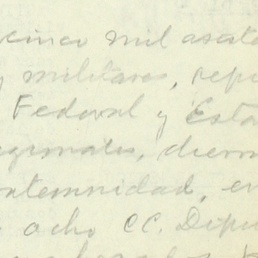 cinco mil asiste
y militares, repre
Federal y Esta
egionales, dieron
olemnidad, en
ocho CC. Dipu